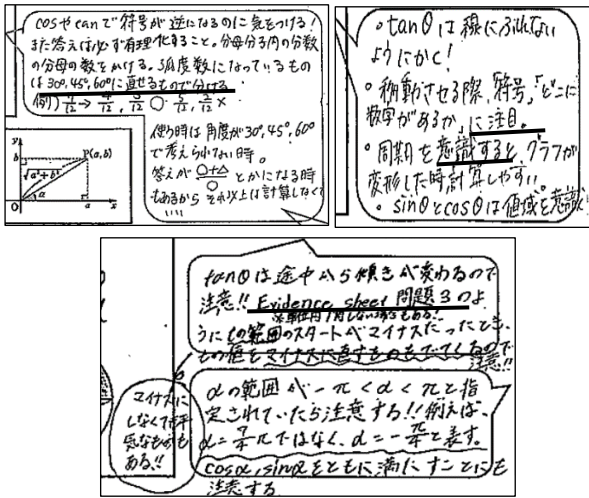 cosやtanで符号が逆になるのに気をつける!
また答えは必ず有理化すること。分母分子内の分数
の分母の数をかける。弧度数になっているもの
は30°,45°,60°に直せるもので分ける。
例) 7/12 → 4/12, 3/12 ○ 5/12, 2/12 ×
使う時は角度が30°,45°,60°
で考えられない時。
答えが ○+△/○ とかになる時
もあるから それ以上は計算しなくて
いい
y
b
P(a,b)
√a²+b²
α
O
a
x
・tanθは線にふれない
ようにかく!
・移動させる際、符号、「どこに
数字があるか」に注目。
・周期を意識すると、グラフが
変形した時計算しやすい
・sinθとcosθは値域を意識
tanθは途中から傾きが変わるので
注意!! Evidence sheet 問題3のよ
※単位円1周しない場合もある!!
うにθの範囲のスタートがマイナスだったとき、
θの値をマイナスに直すものもでてくるので
注意!!
マイナスに
しなくて平
気なものも
ある!!
αの範囲が-π<α<πと指
定されていたら注意する!!例えば、
α=7/4πではなく、α=-π/4と表す。
cosα,sinαをともに満たすことにも
注意する